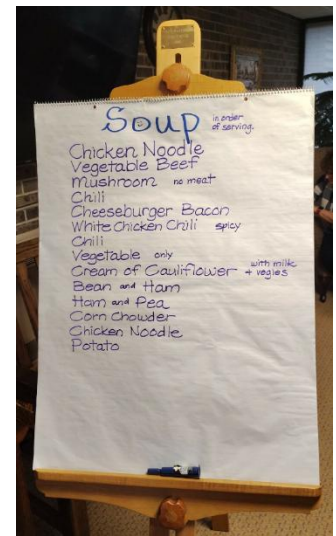 Soup in order of serving.
Chicken Noodle
Vegetable Beef
Mushroom no meat
Chili
Cheeseburger Bacon
White Chicken Chili spicy
Chili
Vegetable only
Cream of Cauliflower with milk + vegies
Bean and Ham
Ham and Pea
Corn Chowder
Chicken Noodle
Potato